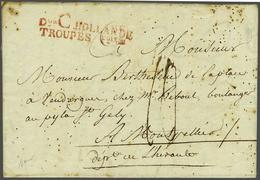 Don C. HOLLANDE
TROUPES
A Monsieur
Monsieur Berthelemi de Caplane
a Vendargues, chez Mr Reboul, boulanger
au pyla St Gely
A Montpellier /.
Dept de l'herault